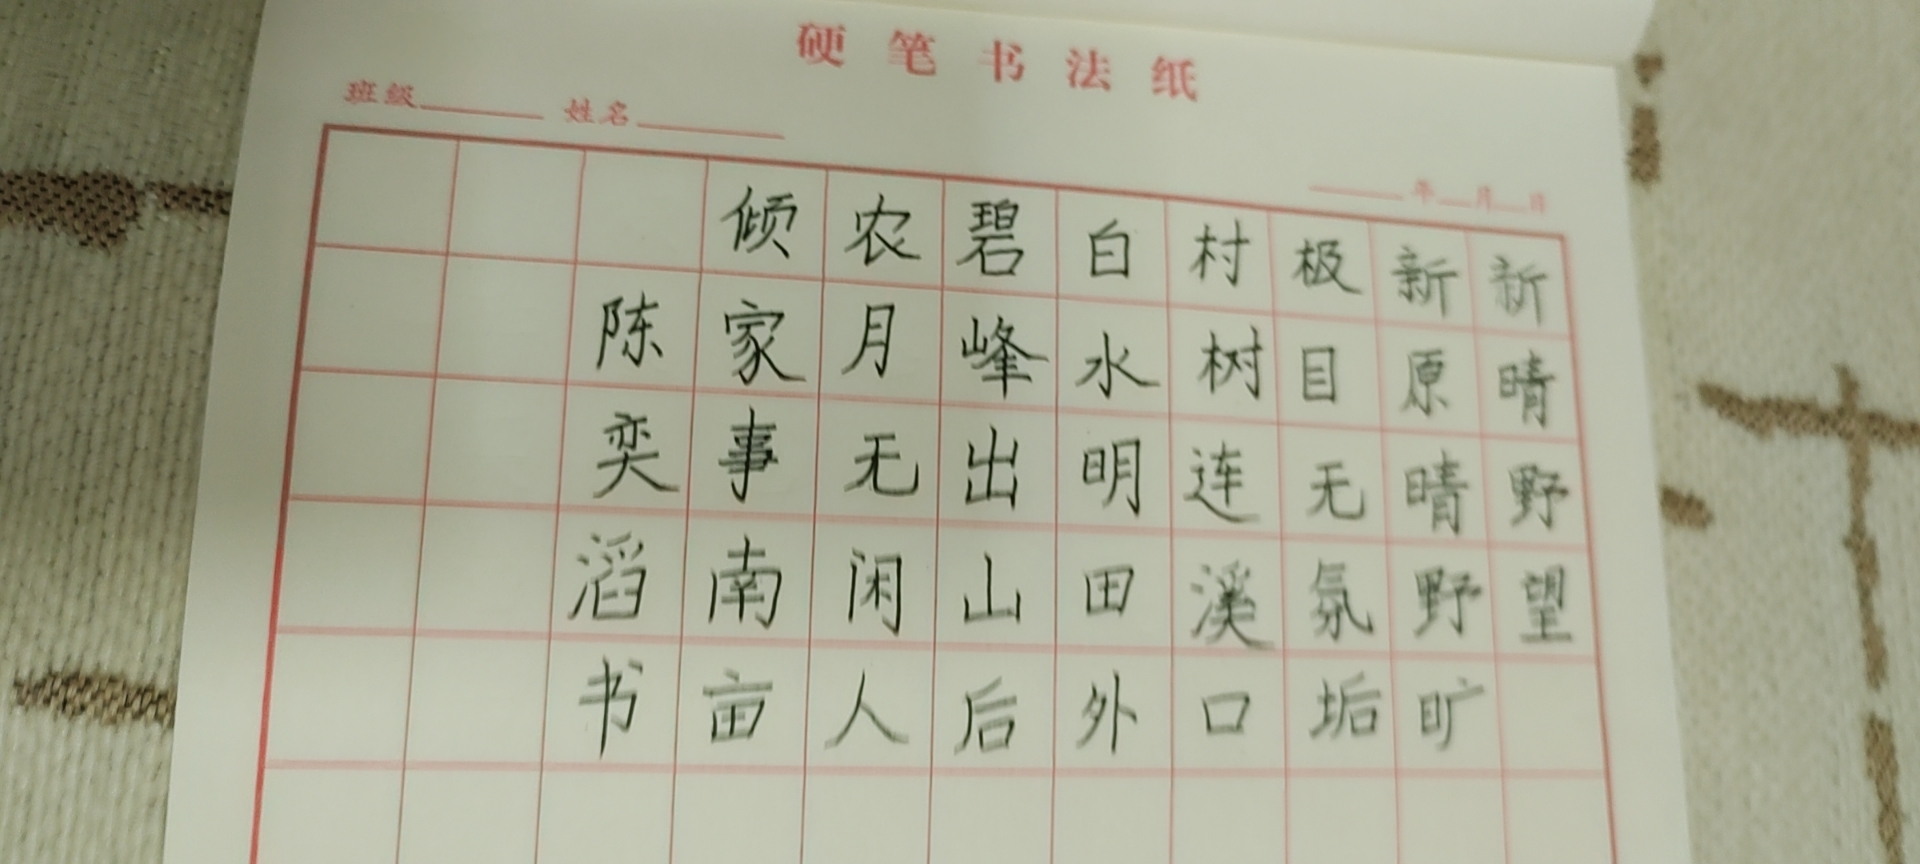 硬笔书法纸
班级 姓名
年 月 日
新晴野望
新原晴野旷
极目无氛垢
村树连溪口
白水明田外
碧峰出山后
农月无闲人
倾家事南亩
陈奕滔书